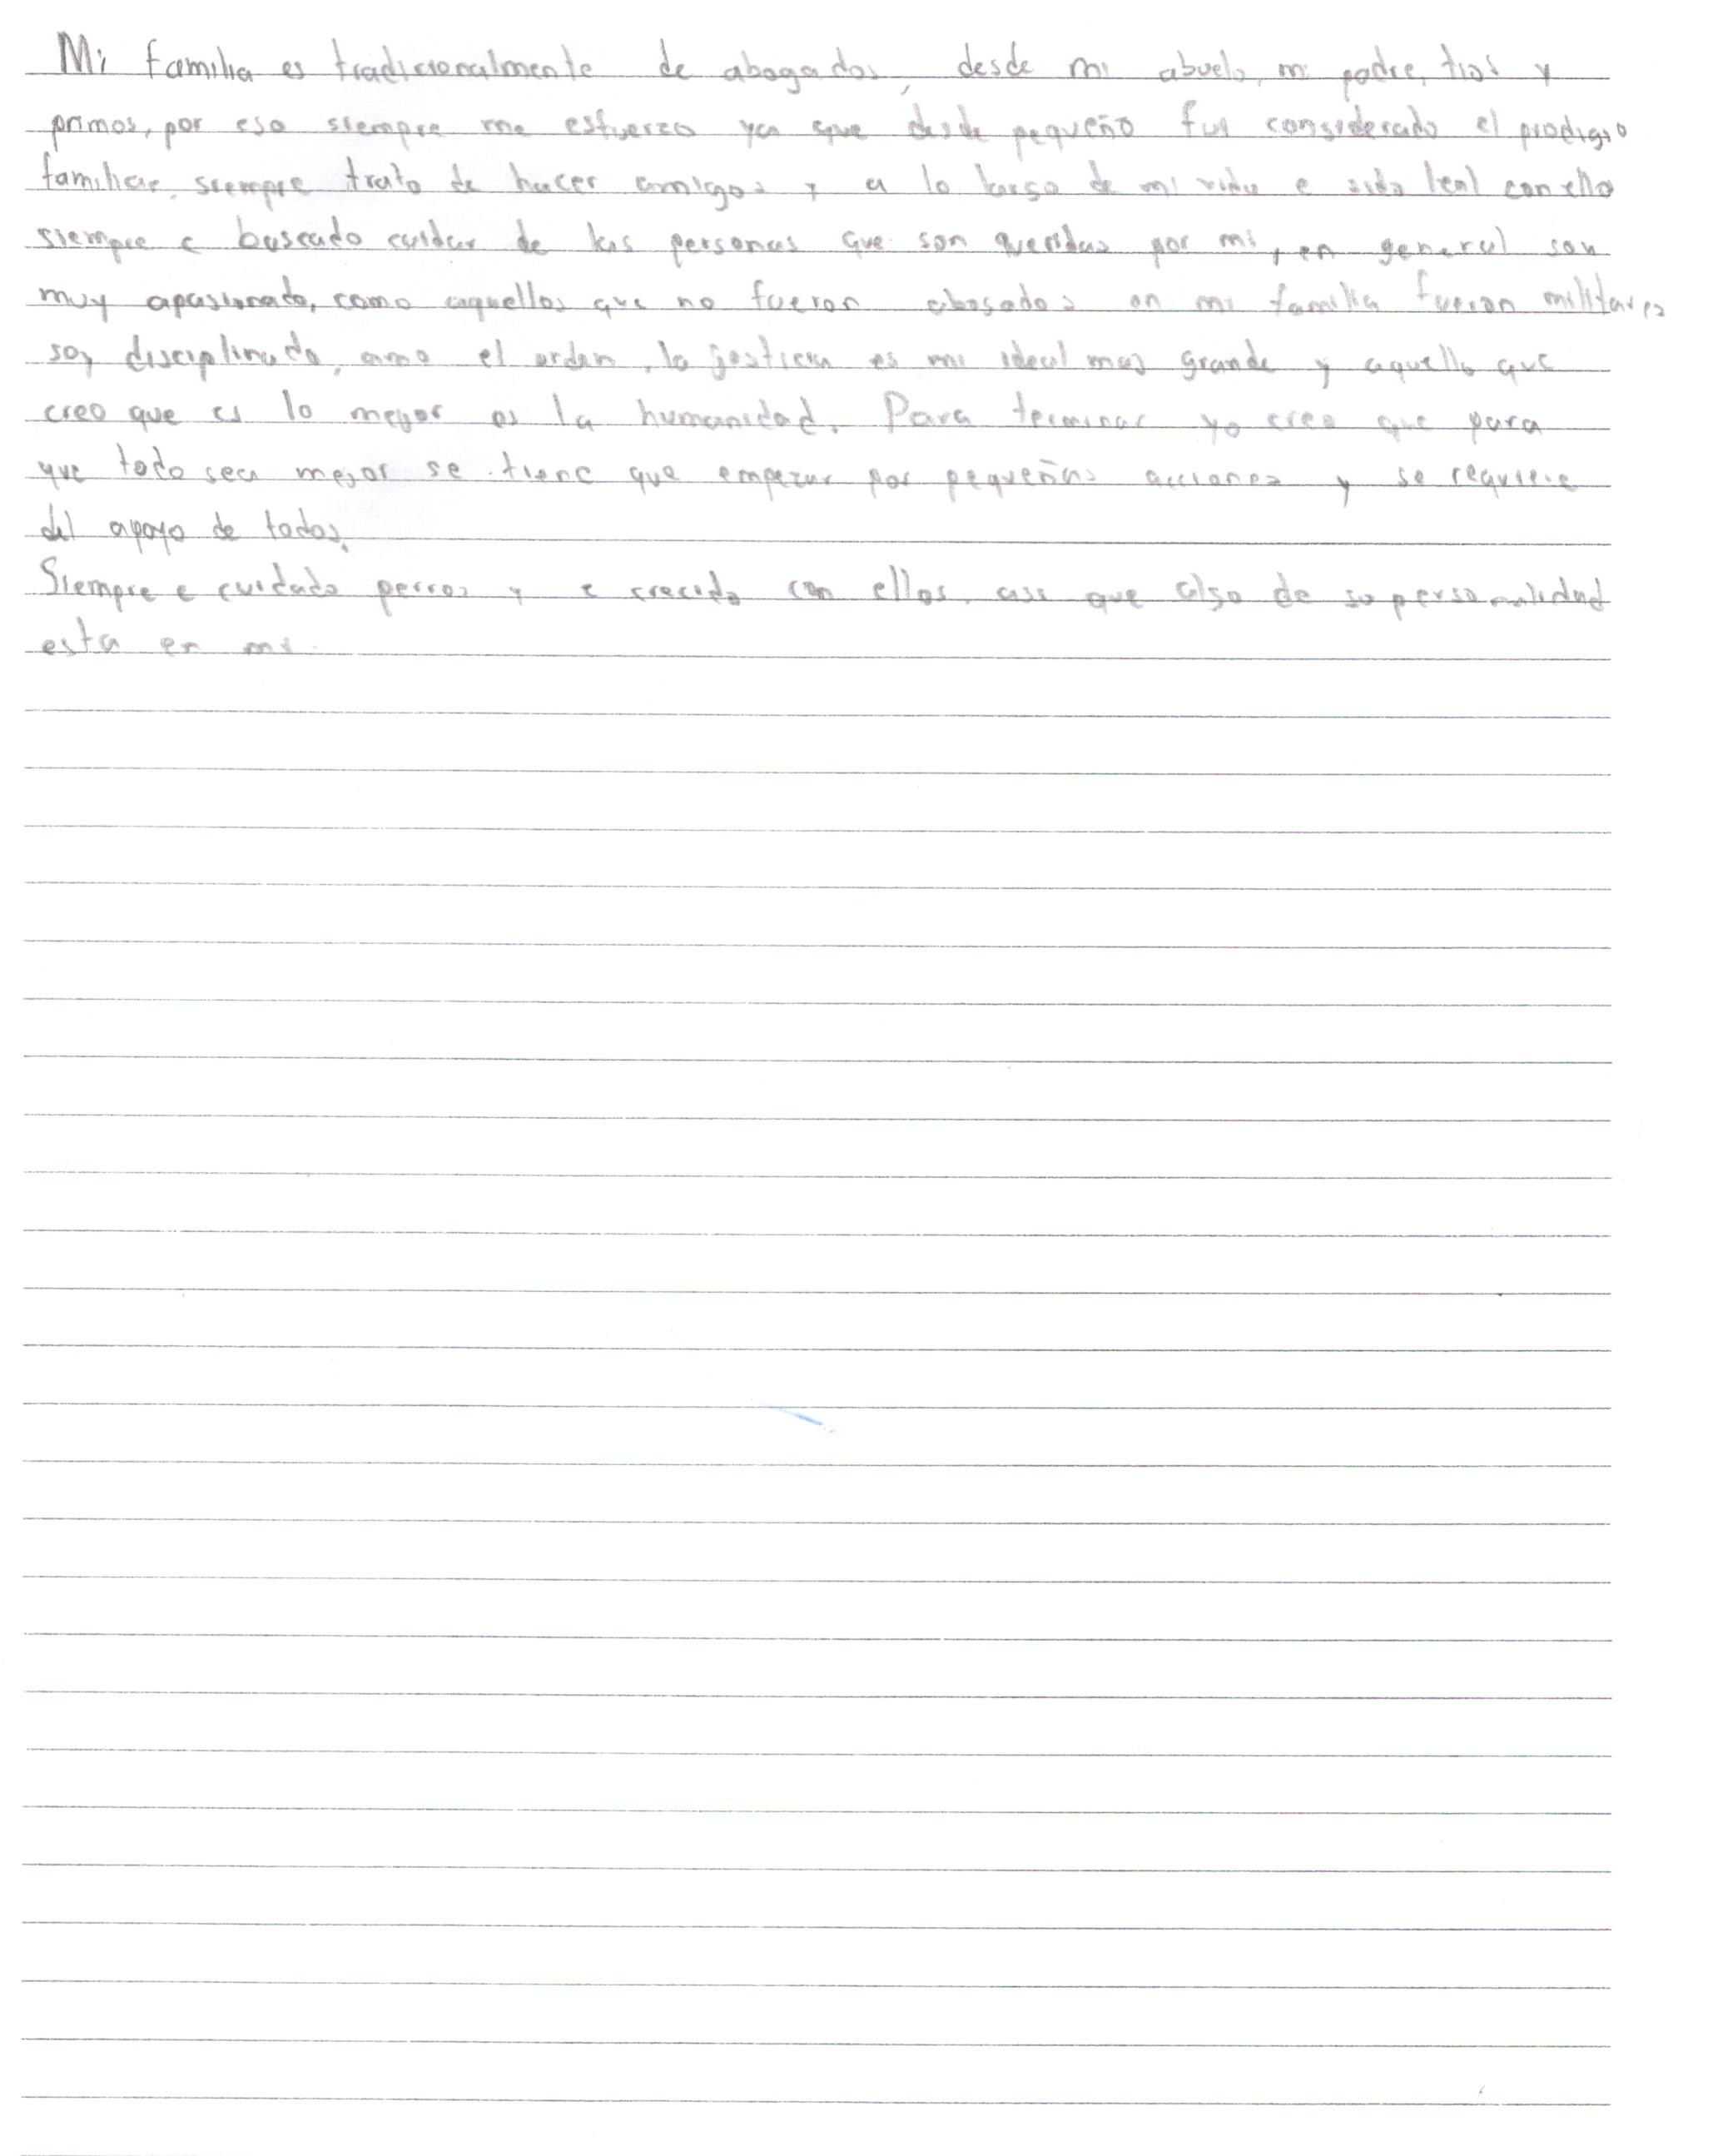 Mi familia es tradicionalmente de abogados, desde mi abuelo, mi padre, tios y
primos, por eso siempre me esfuerzo ya que desde pequeño fui considerado el prodigio
familiar, siempre trato de hacer amigos y a lo largo de mi vida e sido leal con ello
siempre e buscado cuidar de las personas que son queridas por mi, en general son
muy apasionado, como aquellos que no fueron abogados en mi familia fueron militares
soy disciplinado, amo el orden, la justicia es mi ideal mas grande y aquello que
creo que es lo mejor es la humanidad. Para terminar yo creo que para
que todo sea mejor se tiene que empezar por pequeñas acciones y se requiere
del apoyo de todos.
Siempre e cuidado perros y e crecido con ellos, asi que algo de su personalidad
esta en mi.